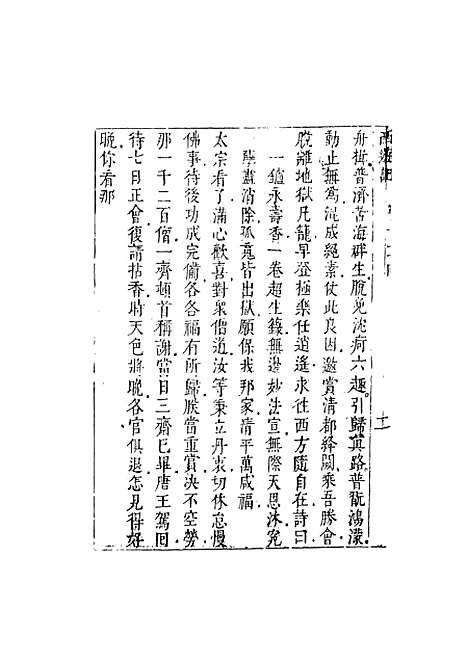 舟揖普濟苦海群生脫免沈痾六趣引歸真路普翫鴻濛
動止無為混成絕素仗此良因邀賞清都絳闕乘吾勝會
脫離地獄凡籠早登極樂任逍遙求往西方隨自在詩曰
一爐永壽香一卷超生籙無邊妙法宣無際天恩沐冤
孽盡消除孤䰟皆出獄願保我邦家清平萬咸福
太宗看了滿心歡喜對衆僧道汝等秉立丹衷切休怠慢
佛事待後功成完備各各福有所歸朕當重賞決不空勞
那一千二百僧一齊頓首稱謝當日三齋已畢唐王駕回
待七日正會復請拈香時天色將晚各官俱退怎見得好
晚你看那